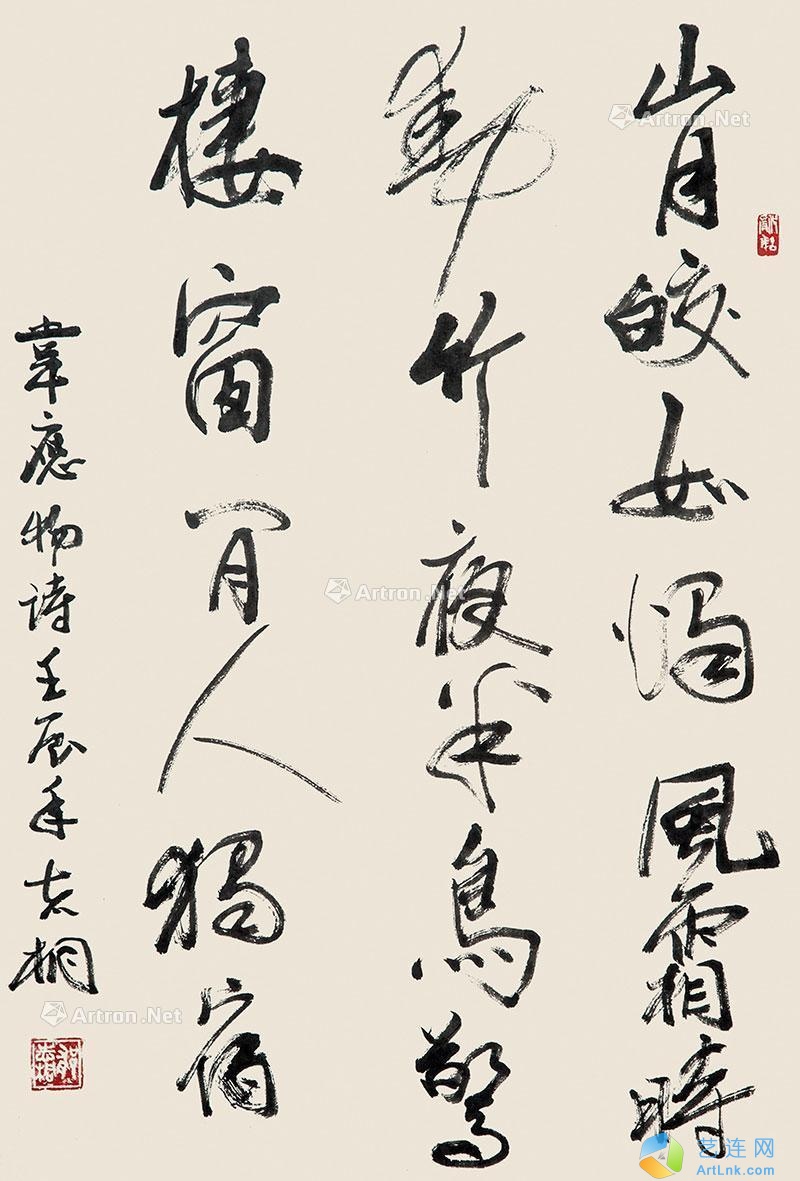 山月皎如燭風霜時
動竹夜半鳥驚
棲窗間人獨宿
韋應物詩壬辰年志桐
Artron.Net
Artron.Net
Artron.Net
艺连网
ArtLnk.com